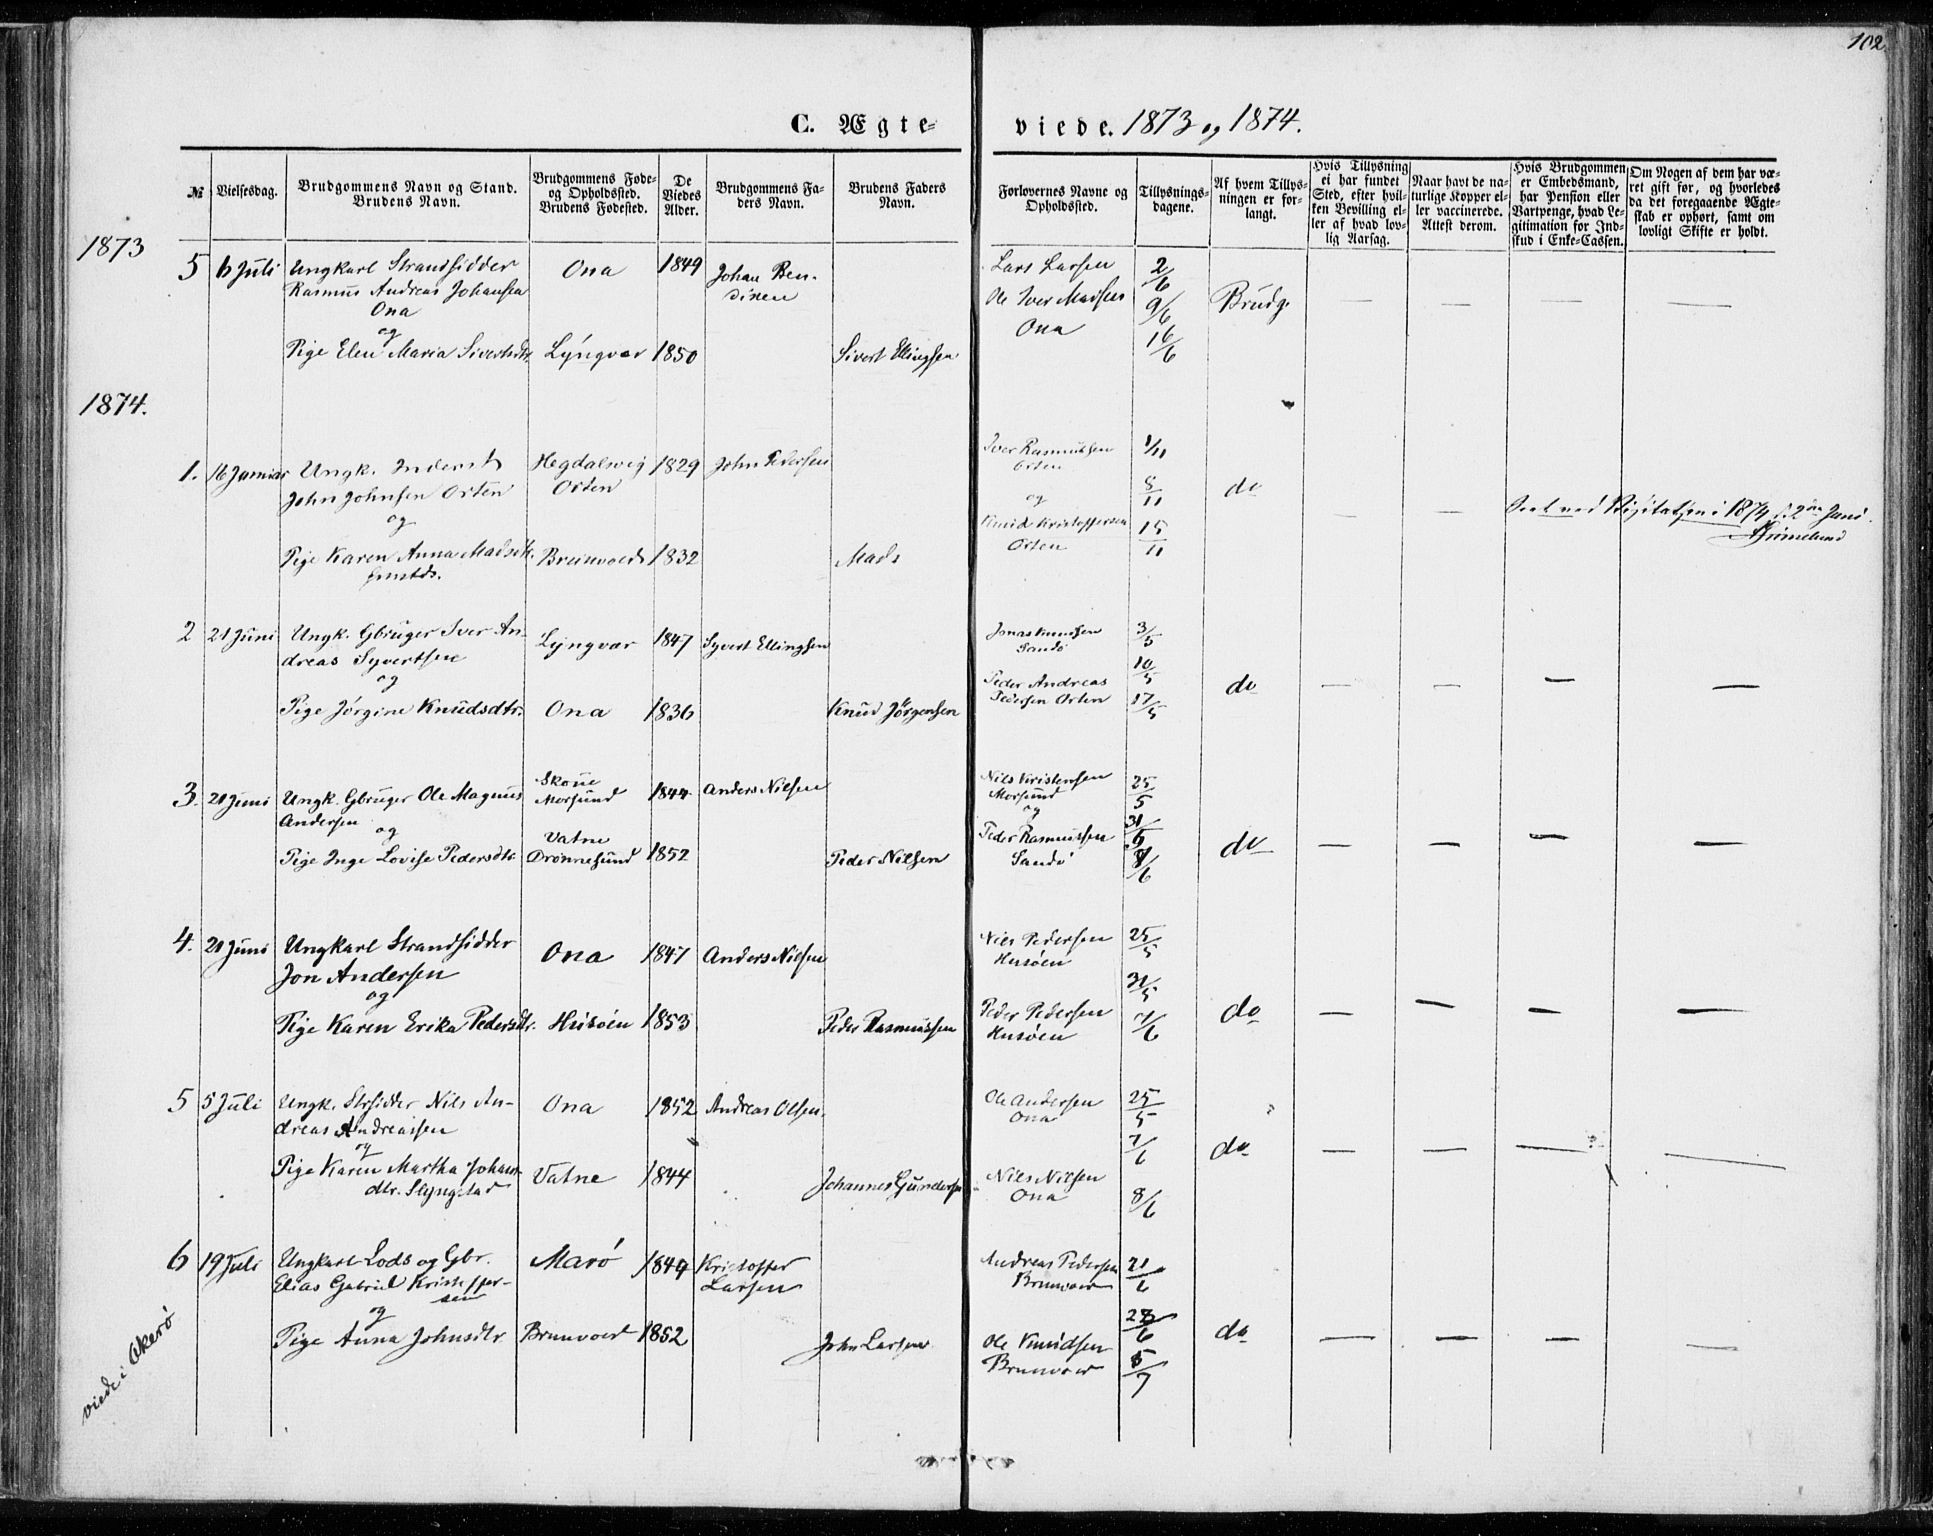 102.
C. Ægteviede. 1873 og 1874.
№
Vielsesdag.
Brudgommens Navn og Stand.
Brudens Navn.
Brudgommens Føde-
og Opholdssted.
Brudens Fødested.
De
Viedes
Alder.
Brudgommens Fa-
ders Navn.
Brudens Faders
Navn.
Forlovernes Navne og
Opholdssted.
Tillysnings-
dagene.
Af hvem Tillys-
ningen er for-
langt.
Hvis Tillysning
ei har fundet
Sted, efter hvil-
ken Bevilling el-
ler af hvad lov-
lig Aarsag.
Naar havt de na-
turlige Kopper el-
ler vaccinerede.
Attest derom.
Hvis Brudgommen
er Embedsmand,
har Pension eller
Vartpenge, hvad Le-
gitimation for Ind-
skud i Enke-Cassen.
Om Nogen af dem har væ-
ret gift før, og hvorledes
da det foregaaende Ægte-
skab er ophørt, samt om
lovligt Skifte er holdt.
1873
5 6 Juli Ungkarl Strandsidder Ona 1849 Johan Ben-
Rasmus Andreas Johansen
Ona
og
Pige Elen Maria Sivertsdtr. Lyngvær 1850 Sivert Ellingsen
Lars Larsen 2/6
Ole Iver Madsen 9/6 Brudg. — — — —
Ona 16/6
1874.
1. 16 Januar Ungk. Inderst Hegdalsvig 1829 John Pedersen
John Johnsen Orten Orten
og
Pige Karen Anna Madsdtr. 1832 Mads
Iver Rasmussen 1/11
Orten
og 8/11 do — —
Knud Kristoffersen 15/11
Orten
Seet ved Visitatsen i 1874 Juni
2 21 Juni Ungk. Gbruger Iver An- Lyngvær 1847 Syvert Ellingsen
dreas Syvertsen
og
Pige Jørgine Knudsdtr. Ona 1836 Knud Jørgensen
Jonas Knudsen 3/5
Sandø
Peder Andreas 10/5 do — — — —
Pedersen Orten 17/5
3. 21 Juni Ungk. Gbruger Ole Magnus Morsund 1844 Anders Nilsen
Andersen
og
Pige Inge Lovise Pedersdtr. Vatne
Drønnesund 1852 Peder Nilsen
Nils Kristensen 25/5
Morsund
og 31/5
Peder Rasmussen 7/6 do — — — —
Sandø
4. 21 Juni Ungkarl Strandsidder Ona 1847 Anders Nilsen
Jon Andersen
og
Pige Karen Erika Pedersdtr. Husøen 1853 Peder Rasmussen
Nils Pedersen 25/5
Husøen
31/5
Peder Pedersen 7/6 do — — — —
Husøen
5 5 Juli Ungk. Strsidder Nils An- Ona 1852 Andreas Olsen
dreas Andreassen
og
Pige Karen Martha Johans- Vatne 1844 Johannes Gundersen
dtr. Slyngstad
Ole Andersen 25/5
Ona
7/6 do — — — —
Nils Nilsen
Ona 8/6
6 19 Juli Ungkarl Lods og Gbr. Marø 1849 Kristoffer
Elias Gabriel Kristoffer- Larsen
sen
og
Pige Anna Johnsdtr. Brunvoer 1852 John Larsen
Andreas Pedersen 21/6
Brunvoer
28/6 do — — — —
Ole Knudsen
Brunvoer 5/7
viede i Akerø